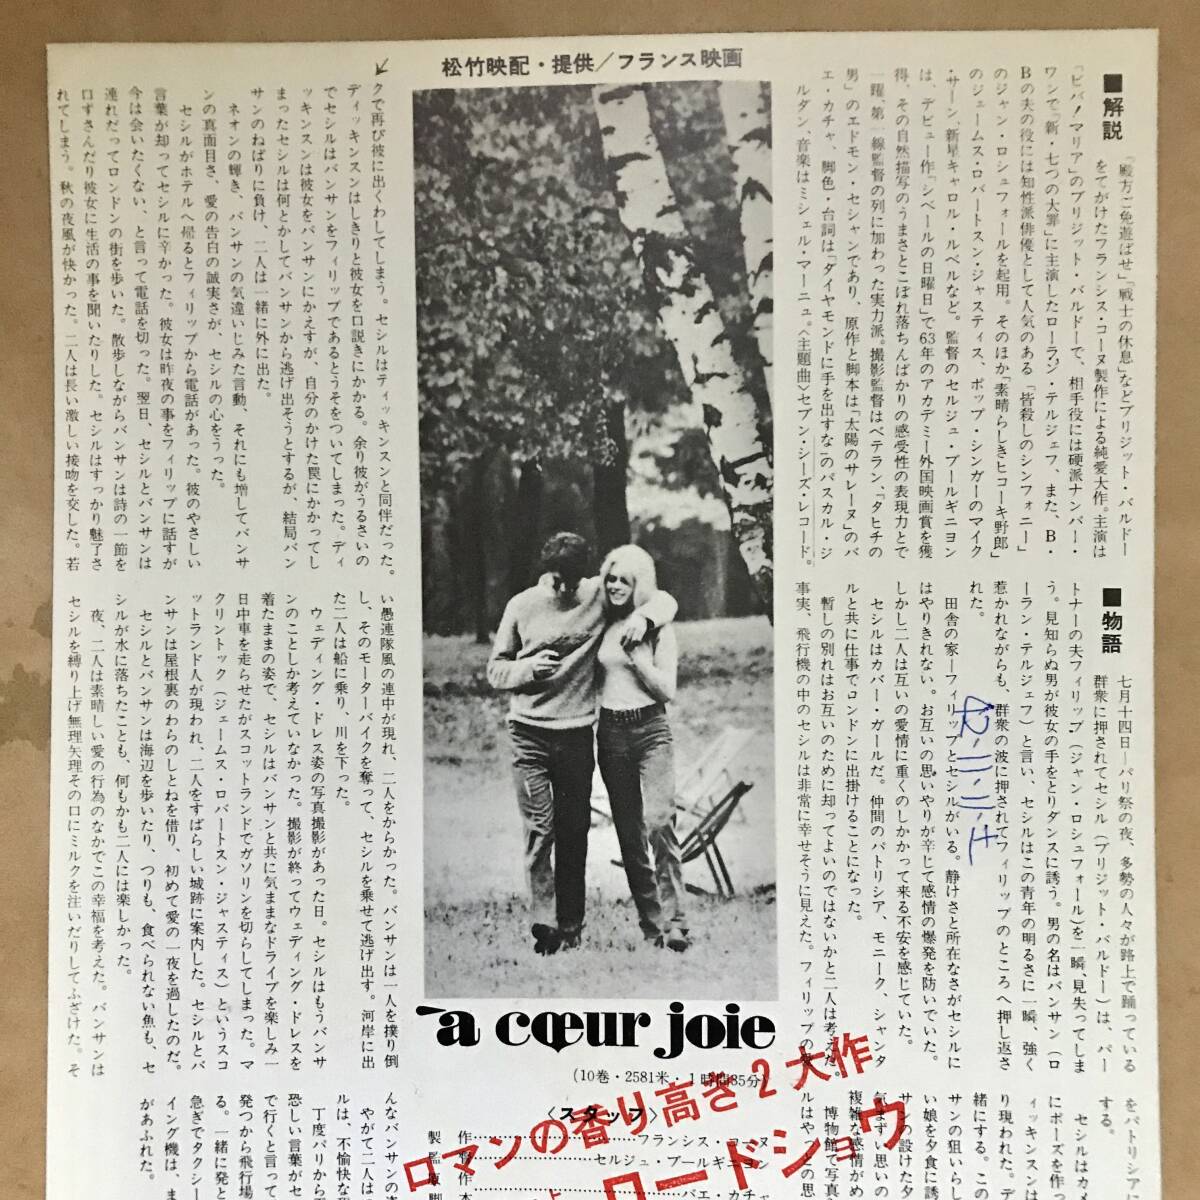 松竹映配・提供／フランス映画
■解説
「殿方ご免遊ばせ」「戦士の休息」などブリジット・バルドー
をてがけたフランシス・コーヌ製作による純愛大作。主演は
「ビバ！マリア」のブリジット・バルドーで、相手役には硬派ナンバー・
ワンで「新・七つの大罪」に主演したローラン・テルジェフ、また、B・
Bの夫の役には知性派俳優として人気のある「皆殺しのシンフォニー」
のジャン・ロシュフォールを起用。そのほか「素晴らしきヒコーキ野郎」
のジェームス・ロバートスン・ジャスティス、ポップ・シンガーのマイク
・サーン、新星キャロル・ルベルなど。監督のセルジュ・ブールギニヨン
は、デビュー作「シベールの日曜日」で63年のアカデミー外国映画賞を獲
得、その自然描写のうまさとこぼれ落ちんばかりの感受性の表現力とで
一躍、第一線監督の列に加わった実力派。撮影監督はベテラン、「タヒチの
男」のエドモン・セシャンであり、原作と脚本は「太陽のサレーヌ」のバ
エ・カチャ、脚色・台詞は「ダイヤモンドに手を出すな」のパスカル・ジ
ルダン、音楽はミシェル・マーニュ。〈主題曲〉セブン・シーズ・レコード。
■物語
七月十四日―パリ祭の夜、多勢の人々が路上で踊っている
群衆に押されてセシル（ブリジット・バルドー）は、パー
トナーの夫フィリップ（ジャン・ロシュフォール）を一瞬、見失ってしま
う。見知らぬ男が彼女の手をとりダンスに誘う。男の名はバンサン（ロ
ーラン・テルジェフ）と言い、セシルはこの青年の明るさに一瞬、強く
惹かれながらも、群衆の波に押されてフィリップのところへ押し返さ
れた。
田舎の家―フィリップとセシルがいる。静けさと所在なさがセシルに
はやりきれない。お互いの思いやりが辛じて感情の爆発を防いでいた。
しかし二人は互いの愛情に重くのしかかって来る不安を感じていた。
セシルはカバー・ガールだ。仲間のパトリシア、モニーク、シャンタ
ルと共に仕事でロンドンに出掛けることになった。
暫しの別れはお互いのために却ってよいのではないかと二人は考えた。
事実、飛行機の中のセシルは非常に幸せそうに見えた。フィリップの
42・11・11・土
をパトリシア
する。
セシルはカメ
にポーズを作っ
ィッキンスンは
り現われた。デ
緒にする。この
サンの狙いらし
い娘を夕食に誘
サンの設けた夕
気まずい思いの
複雑な感情がめ
博物館で写真
ルはやっとの思
クで再び彼に出くわしてしまう。セシルはディッキンスンと同伴だった。
ディッキンスンはしきりと彼女を口説きにかかる。余り彼がうるさいの
でセシルはバンサンをフィリップであるとうそをついてしまった。ディ
ッキンスンは彼女をバンサンにかえすが、自分のかけた罠にかかってし
まったセシルは何とかしてバンサンから逃げ出そうとするが、結局バン
サンのねばりに負け、二人は一緒に外に出た。
ネオンの輝き、バンサンの気違いじみた言動、それにも増してバンサ
ンの真面目さ、愛の告白の誠実さが、セシルの心をうった。
セシルがホテルへ帰るとフィリップから電話があった。彼のやさしい
言葉が却ってセシルに辛かった。彼女は昨夜の事をフィリップに話すが
今は会いたくない、と言って電話を切った。翌日、セシルとバンサンは
連れだってロンドンの街を歩いた。散歩しながらバンサンは詩の一節を
口ずさんだり彼女に生活の事を聞いたりした。セシルはすっかり魅了さ
れてしまう。秋の夜風が快かった。二人は長い激しい接吻を交した。若
い愚連隊風の連中が現れ、二人をからかった。バンサンは一人を撲り倒
し、そのモーターバイクを奪って、セシルを乗せて逃げ出す。河岸に出
た二人は船に乗り、川を下った。
ウェディング・ドレス姿の写真撮影があった日。セシルはもうバンサ
ンのことしか考えていなかった。撮影が終ってウェディング・ドレスを
着たままの姿で、セシルはバンサンと共に気ままなドライブを楽しみ一
日中車を走らせたがスコットランドでガソリンを切らしてしまった。マ
クリントック（ジェームス・ロバートスン・ジャスティス）というスコ
ットランド人が現われ、二人をすばらしい城跡に案内した。セシルとバ
ンサンは屋根裏のわらのしとねを借り、初めて愛の一夜を過したのだ。
セシルとバンサンは海辺を歩いたり、つりも、食べられない魚も、セ
シルが水に落ちたことも、何もかも二人には楽しかった。
夜、二人は素晴しい愛の行為のなかでこの幸福を考えた。バンサンは
セシルを縛り上げ無理矢理その口にミルクを注いだりしてふざけた。そ
んなバンサンの
やがて二人は
ルは、不愉快な
丁度パリから
恐しい言葉がセ
で行くと言って
発つから飛行場
る。一緒に発と
急ぎでタクシー
イング機は、ま
があふれた。
à cœur joie
（10巻・2581米・1時間35分）
ロマンの香り高き2大作
ロードショウ
〈スタッフ〉
製作……フランシス・コーヌ
監督……セルジュ・ブールギニヨン
バエ・カチャ